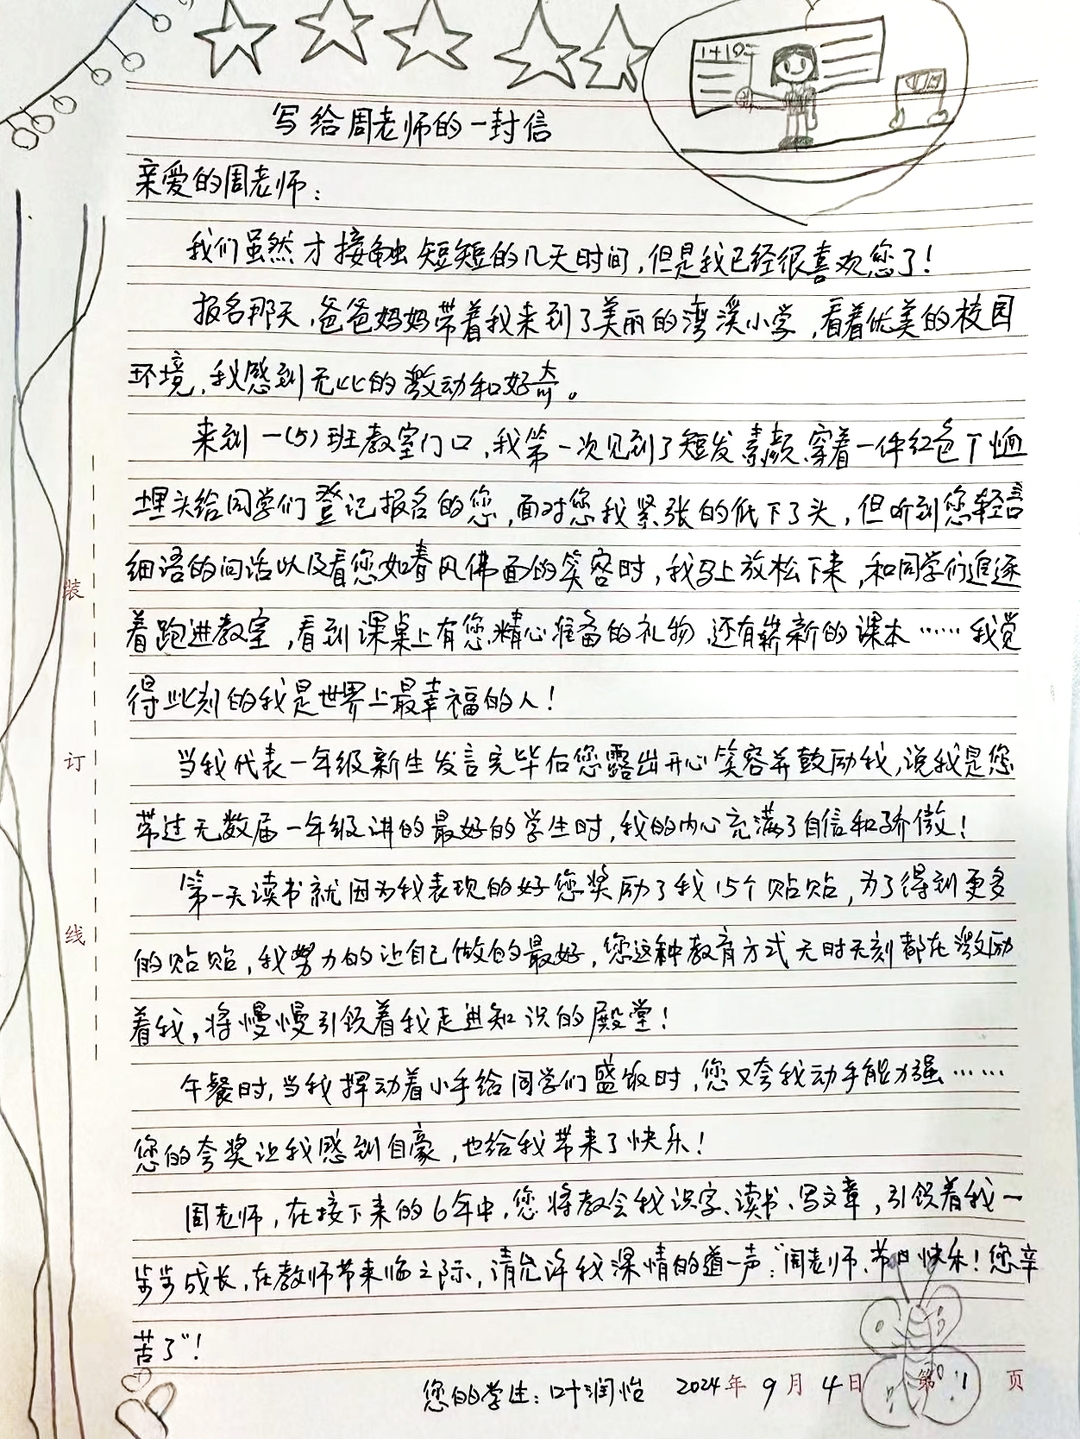 1+10=
写给周老师的一封信
亲爱的周老师：
我们虽然才接触短短的几天时间，但是我已经很喜欢您了！
报名那天，爸爸妈妈带着我来到了美丽的湾溪小学，看着优美的校园
环境，我感到无比的激动和好奇。
来到一(5)班教室门口，我第一次见到了短发素颜、穿着一件红色T恤
埋头给同学们登记报名的您，面对您我紧张的低下了头，但听到您轻言
细语的问话以及看您如春风佛面的笑容时，我马上放松下来，和同学们追逐
着跑进教室，看到课桌上有您精心准备的礼物，还有崭新的课本……我觉
得此刻的我是世界上最幸福的人！
当我代表一年级新生发言完毕后您露出开心笑容并鼓励我，说我是您
带过无数届一年级讲的最好的学生时，我的内心充满了自信和骄傲！
第一天读书就因为我表现的好您奖励了我15个贴贴，为了得到更多
的贴贴，我努力的让自己做的最好，您这种教育方式无时无刻都在激励
着我，将慢慢引领着我走进知识的殿堂！
午餐时，当我挥动着小手给同学们盛饭时，您又夸我动手能力强……
您的夸奖让我感到自豪，也给我带来了快乐！
周老师，在接下来的6年中，您将教会我识字、读书、写文章，引领着我一
步步成长，在教师节来临之际，请允许我深情的道一声：“周老师、节日快乐！您辛
苦了”！
您的学生：叶润怡 2024年9月4日 第1页
装
订
线